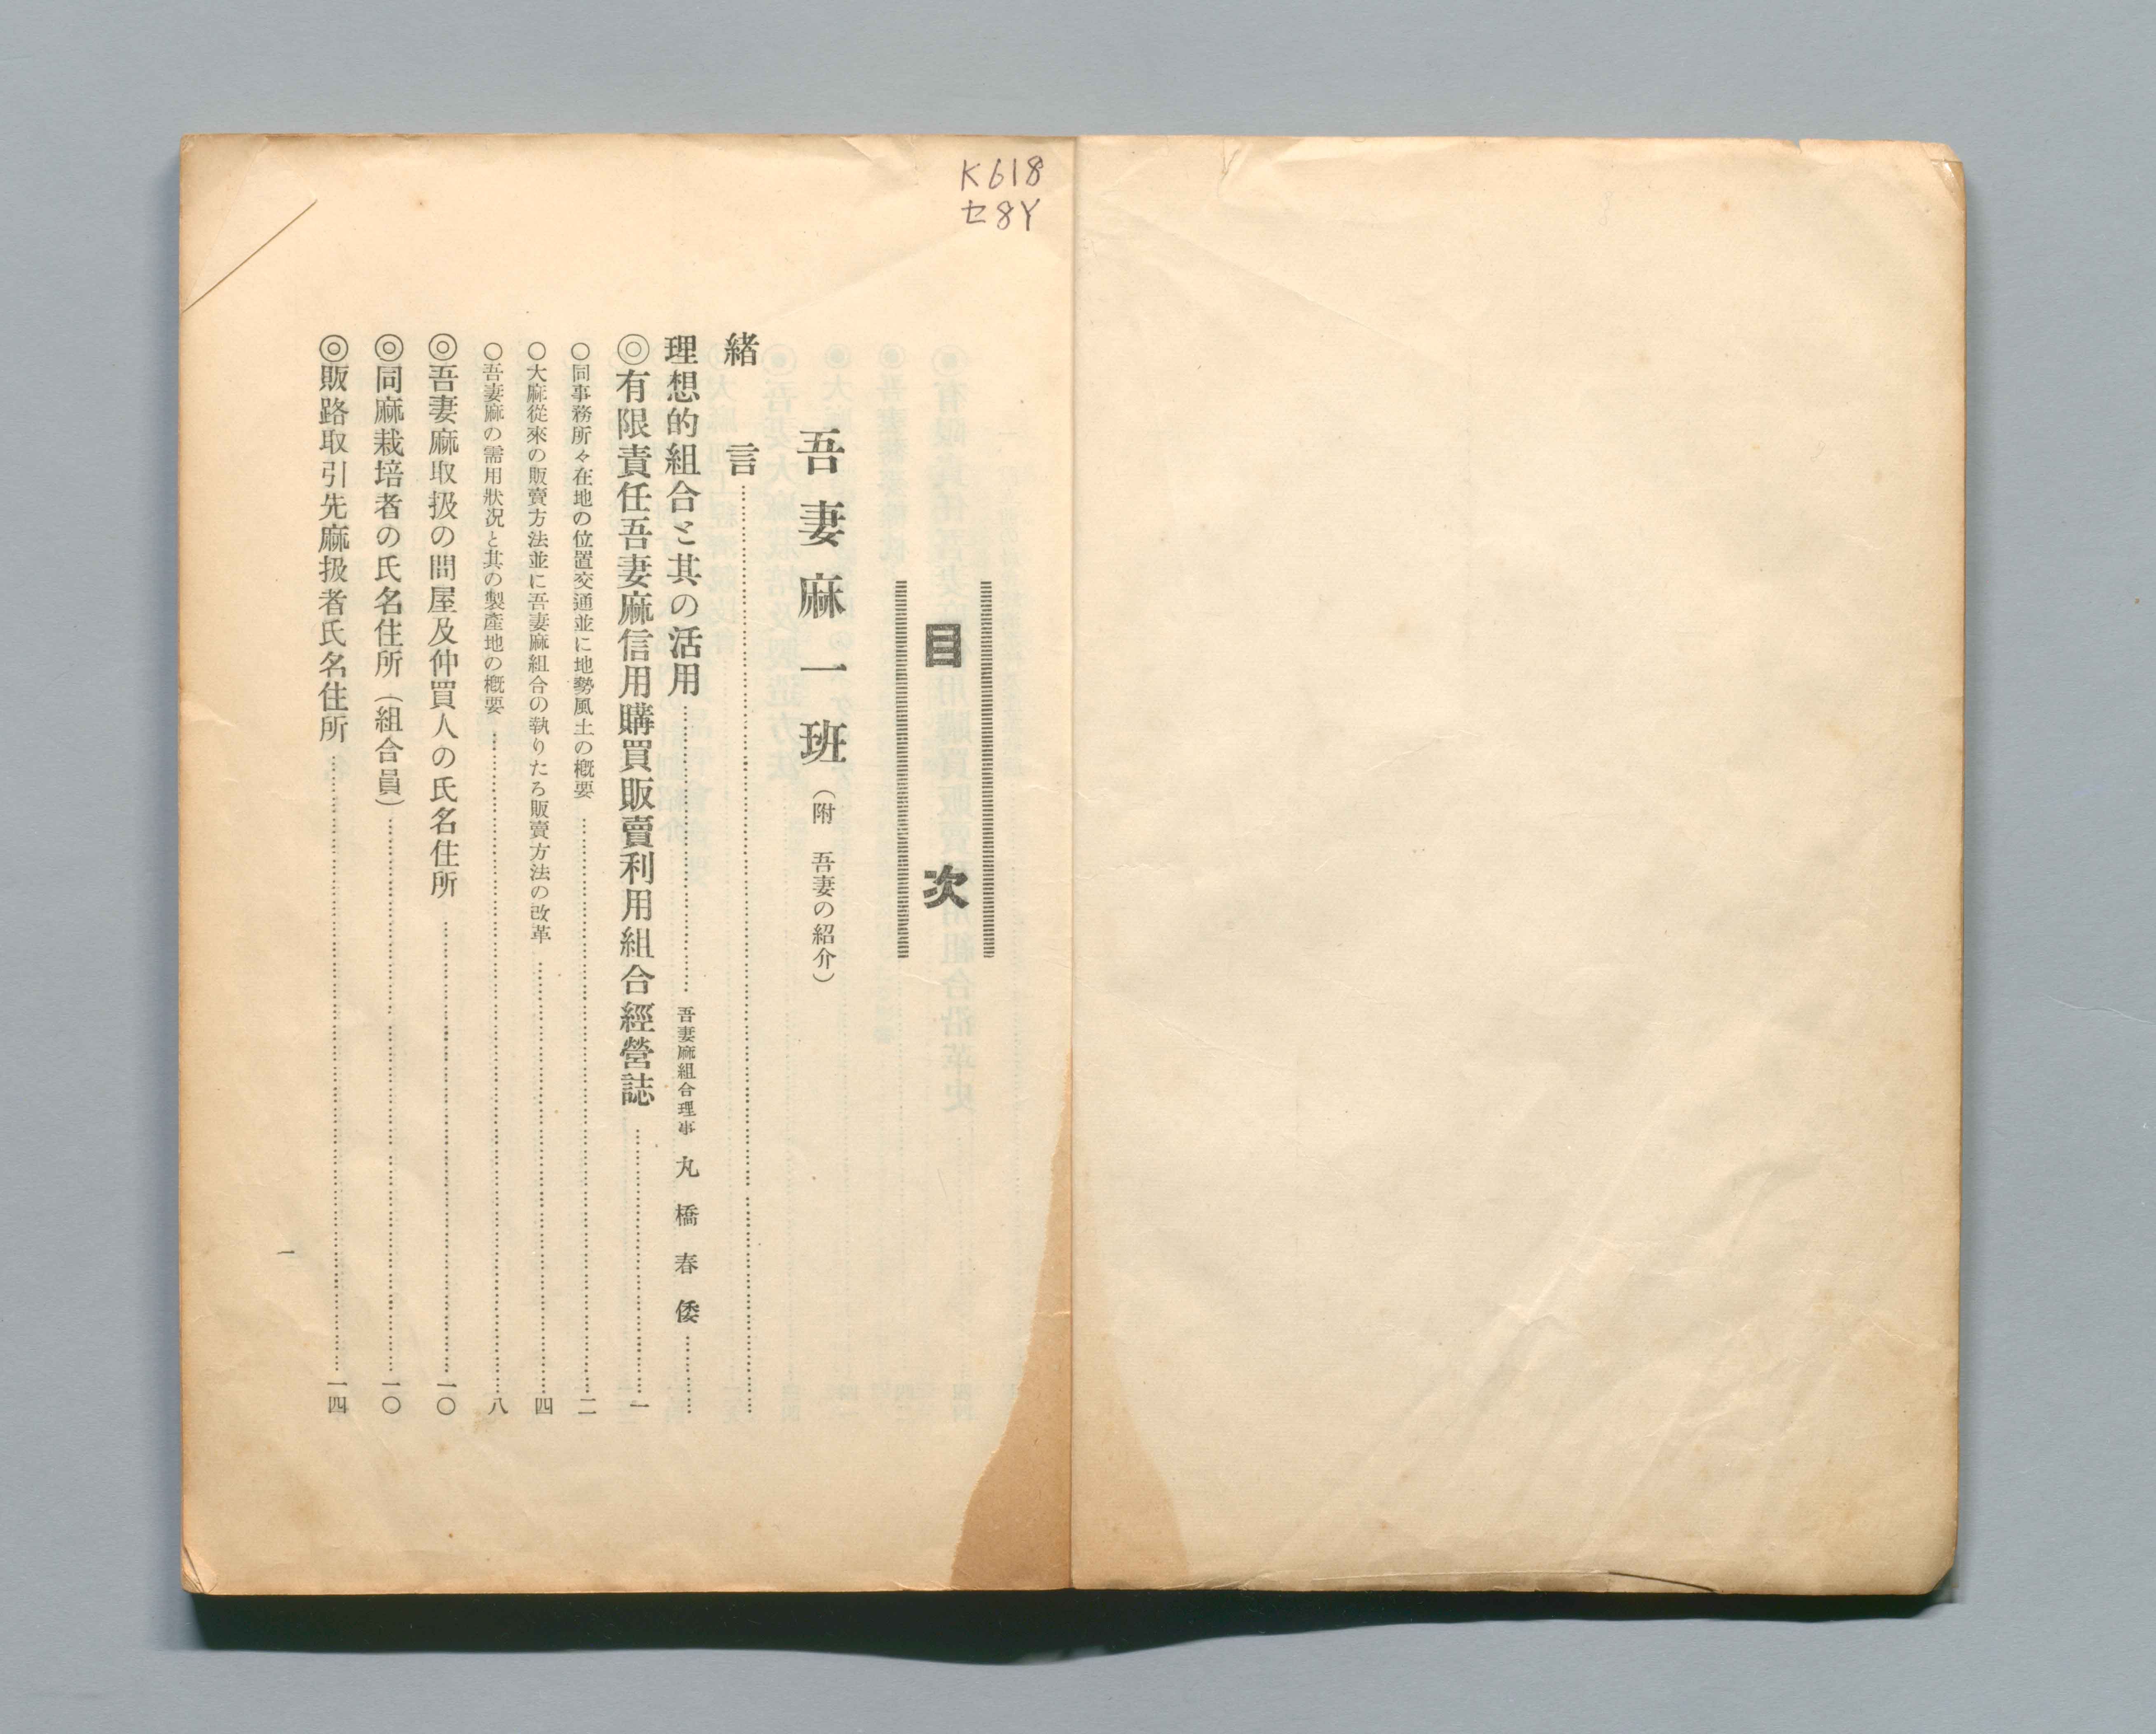 K618
セ8Y
目次
吾妻麻一班（附　吾妻の紹介）
緒言…………
理想的組合と其の活用…………吾妻麻組合理事　丸橋春倭…………
◎有限責任吾妻麻信用購買販賣利用組合經營誌…………一
○同事務所々在地の位置交通並に地勢風土の概要…………二
○大麻從來の販賣方法並に吾妻麻組合の執りたろ販賣方法の改革…………四
○吾妻麻の需用狀況と其の製產地の概要…………八
◎吾妻麻取扱の問屋及仲買人の氏名住所…………一〇
◎同麻栽培者の氏名住所（組合員）…………一〇
◎販路取引先麻扱者氏名住所…………一四
一